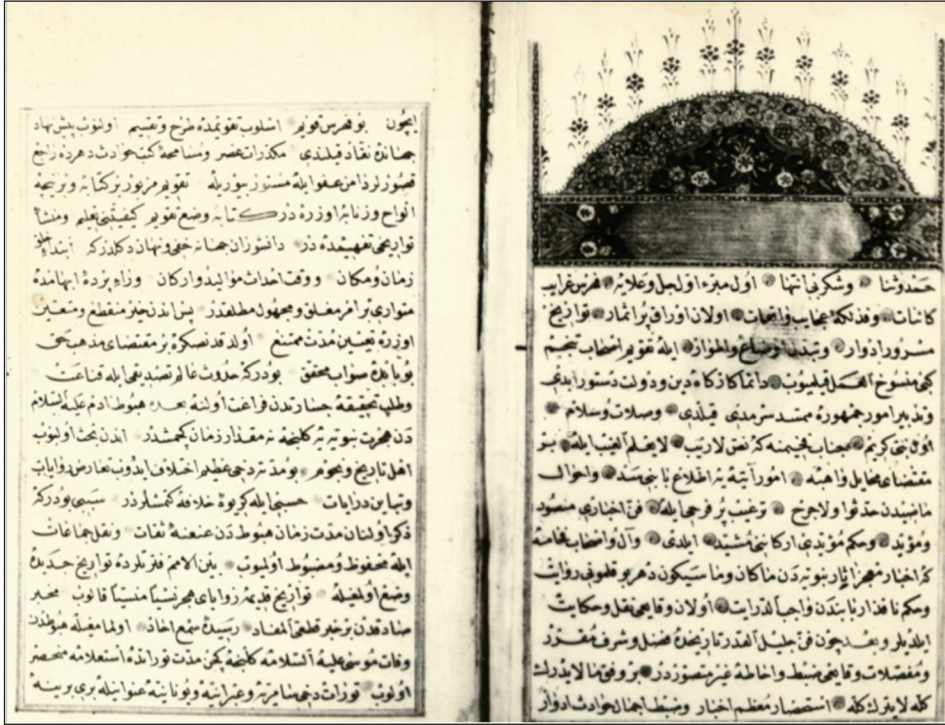 حمد وثنا وشكر بی انتها اول مبدء اول جل وعلایه فهرس غرایب
كائنات وفذلكهٔ عجایب واقعات اولان اوراق پر اثمار تواریخ
مرور ادوار وتبدل اوضاع واطوار ایله تقویم اصحاب تنجیم
كبی منسوخ العمل قیلمیوب دائما كارگاه دین ودولت دستور ابدی
وتدبیر امور جمهوره ممتد سرمدی قیلدی وصلات وسلام
اول نبی كریم جنابنه كه نص لاریب لایعلم الغیب ایله بر
مقتضای مخایل واهبه امور آتیه یه اطلاع بابی سد واحوال
ماضیدن حدثوا ولاحرج ترغیب پر فرحی ایله فن اخباری منصور
ومؤید وحكم مؤبدی اركاننی مشید ایلدی وآل واصحاب فخامنه
كه اخبار معجز آثار نبویه دن ماكان وماسیكون دهر بوقلمونی روایت
وحكم نافذ اربابندن واجب الدرایت اولان وقایعی نقل وحكایت
ایلدیلر وبعد چون فن جلیل القدر تاریخك فضل وشرفی مقرر
ومفصلات وقایعی ضبط واحاطه غیر متصوردر بر وفق مالایدرك
كله لایترك كله استحضار معظم اخبار وضبط اجمال حوادث ادوار
ایچون بو فهرس قویم اسلوب تقویمده طرح وتقسیم اولنوب پیش نهاد
جهاندهٔ نقاد قیلندی مكدرات عصر ومسامحهٔ كتب حوادث دهرده راجع
قصورلر ذا من عفو ایله مستور بیوریله تقویم مزبور بر كتابه وبر نتیجه
انواح وزنابر اوزره در كتابه وضع تقویم كیفیتنی تعلیم ومنشأ
تواریخی تفهیمده در دانشوران جهانه خفی ونهان دكلدر كه ابتداء خلق
زمان ومكان ووقت احداث موالید واركان وراء پردهٔ ابهامده
متواری بر امر مغلق ومجهول مطلقدر پس اندن حیز منقطع ومتعین
اوزره تعیین مدت ممتنع اولدقدنصكره بر مقتضای مذهب حق
بوبابده صواب محقق بودر كه حدوث عالم تصدیقی ایله قناعت
وطلب تحقیقنه جسارتدن فراغت اولنه بعده هبوط آدم علیه السلام
دن هجرت نبویه یه كلنجه نه مقدار زمان كچمشدر اندن بحث اولنوب
اهل تاریخ ونجوم بو مدتده دخی عظیم اختلاف ایدوب تعارض روایات
وتباین درایات حسبی ایله كربوهٔ خلافه كتمشلردر سببی بودر كه
ذكر اولنان مدت زمان هبوطدن عنعنهٔ ثقات ونقل جماعات
ایله محفوظ ومضبوط اولمیوب بین الامم فترتلرده تواریخ جدیده
وضع اولمغیله تواریخ قدیمه زوایای هجر نسیا منسیا قالوب مخبر
صادقدن بر خبر قطعی المفاد رسیدهٔ سمع آحاد اولمامغیله هبوطدن
وفات موسی علیه السلامه كلنجه كچن مدت توراتده استعلامه منحصر
اولوب تورات دخی سامریه وعبرانیه ویونانیه عنوانیله بری برینه